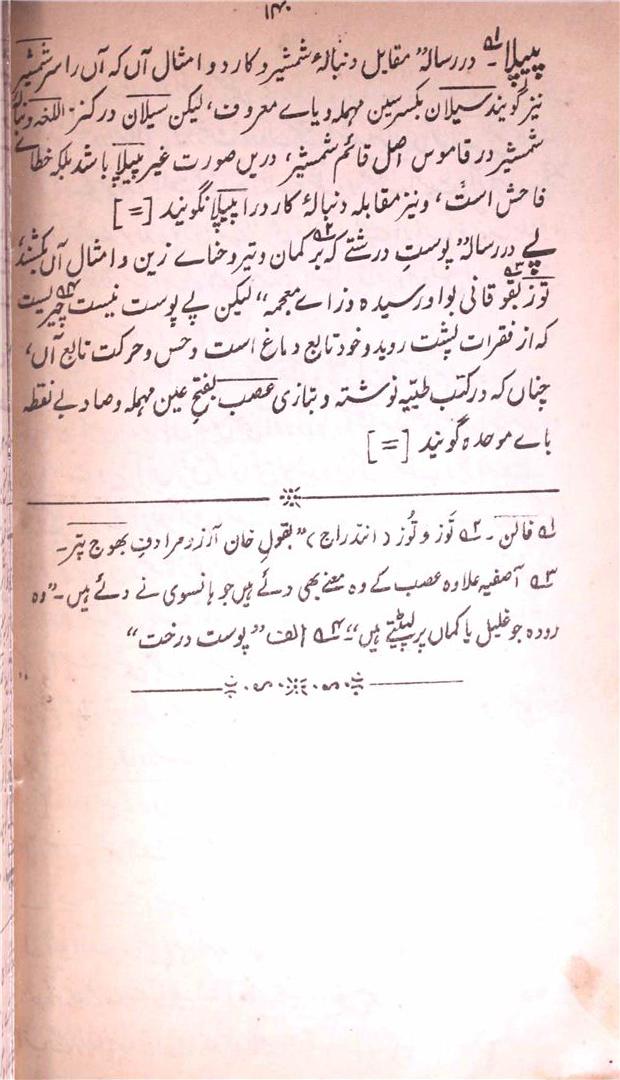 ۱۴۰
پیپلا۔ ۱؎ در رسالہ" مقابل دنبالۂ شمشیر و کارد و امثال آں کہ آں را سر شمشیر
نیز گویند سیلان بکسر سین مہملہ و یاے معروف، لیکن سیلان در کنز اللغہ دنبالۂ
شمشیر در قاموس اصل قائم شمشیر، دریں صورت غیر پیپلا باشد بلکہ خطاے
فاحش است، و نیز مقابلہ دنبالۂ کارد را پیپلا نگویند [=]
پے در رسالہ" پوستِ درشتے کہ بر کمان ۲؎ و تیر و خناے زین و امثال آں بکشند،
توز ۳؎ بفوقانی بواو رسیدہ و زاے معجمہ" لیکن پے پوست نیست ۴؎ چیزیست
کہ از فقرات پشت روید و خود تابع دماغ است و حس و حرکت تابع آں،
چناں کہ در کتب طبیہ نوشتہ و بتازی عصب بفتحِ عین مہملہ و صاد بے نقطہ
باے موحدہ گویند [=]
۱؎ فالن۔ ۲؎ تَوز و تُوز (انندراج)" بقولِ خان آرزو مرادفِ بھوج پتر۔
۳؎ آصفیہ علاوہ عصب کے وہ معنے بھی دئے ہیں جو ہانسوی نے دئے ہیں۔ "وہ
رودہ جو غلیل یا کماں پر لپیٹتے ہیں"۔ ۴؎ الف "پوست درخت"